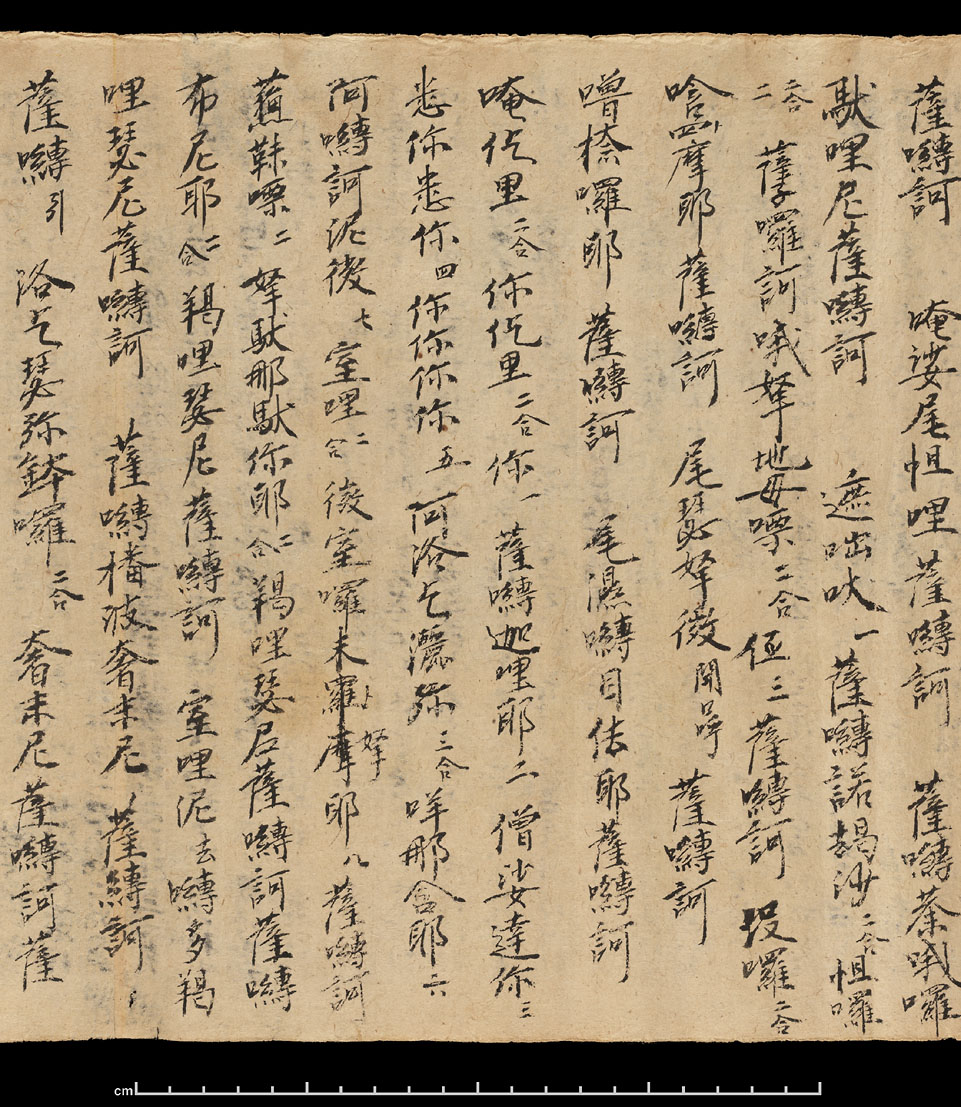 薩嚩訶 唵娑尾怛哩薩嚩訶 薩嚩荼哦囉
馱哩尼薩嚩訶 遮咄吠一薩嚩諾朅沙二合怛囉
二合二 薩囉訶哦拏地毋嘌二合 伍三薩嚩訶 跋囉二合
唅四摩耶薩嚩訶 尾瑟拏微聞呼 薩嚩訶
嚕捺囉耶 薩嚩訶 尾濕嚩目佉耶薩嚩訶
唵仡里二合你仡里二合你一 薩嚩迦哩耶二 僧娑達你三
悉你悉你四你你你你五 阿洛乞灑弥三合 咩那含耶六
阿嚩訶泥微七 室哩二合微室囉末羅拏摩耶八 薩嚩訶
蘓靺嘌二拏馱那馱你耶二合羯哩瑟尼薩嚩訶薩嚩
布尼耶二合羯哩瑟尼薩嚩訶 室哩泥去嚩多羯
哩瑟尼薩嚩訶 薩嚩播波奢末尼 薩嚩訶
薩嚩引 洛乞瑟弥鉢囉二合 奢末尼薩嚩訶薩